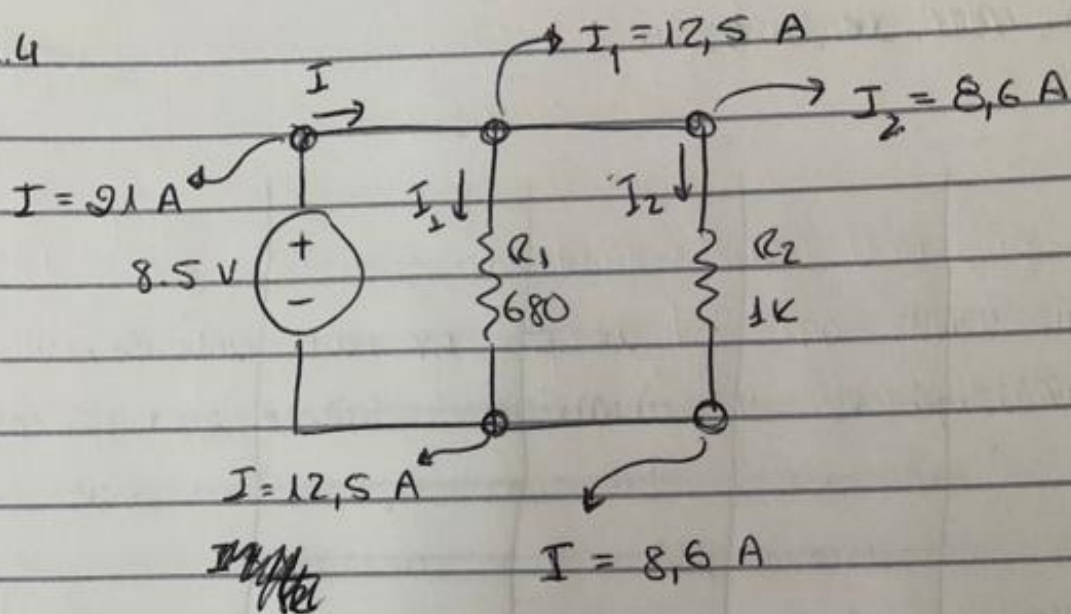 .4
I
I₁ = 12,5 A
I₂ = 8,6 A
I = 21 A
I₁
I₂
+
8.5 V
-
R₁
680
R₂
1K
I = 12,5 A
I = 8,6 A